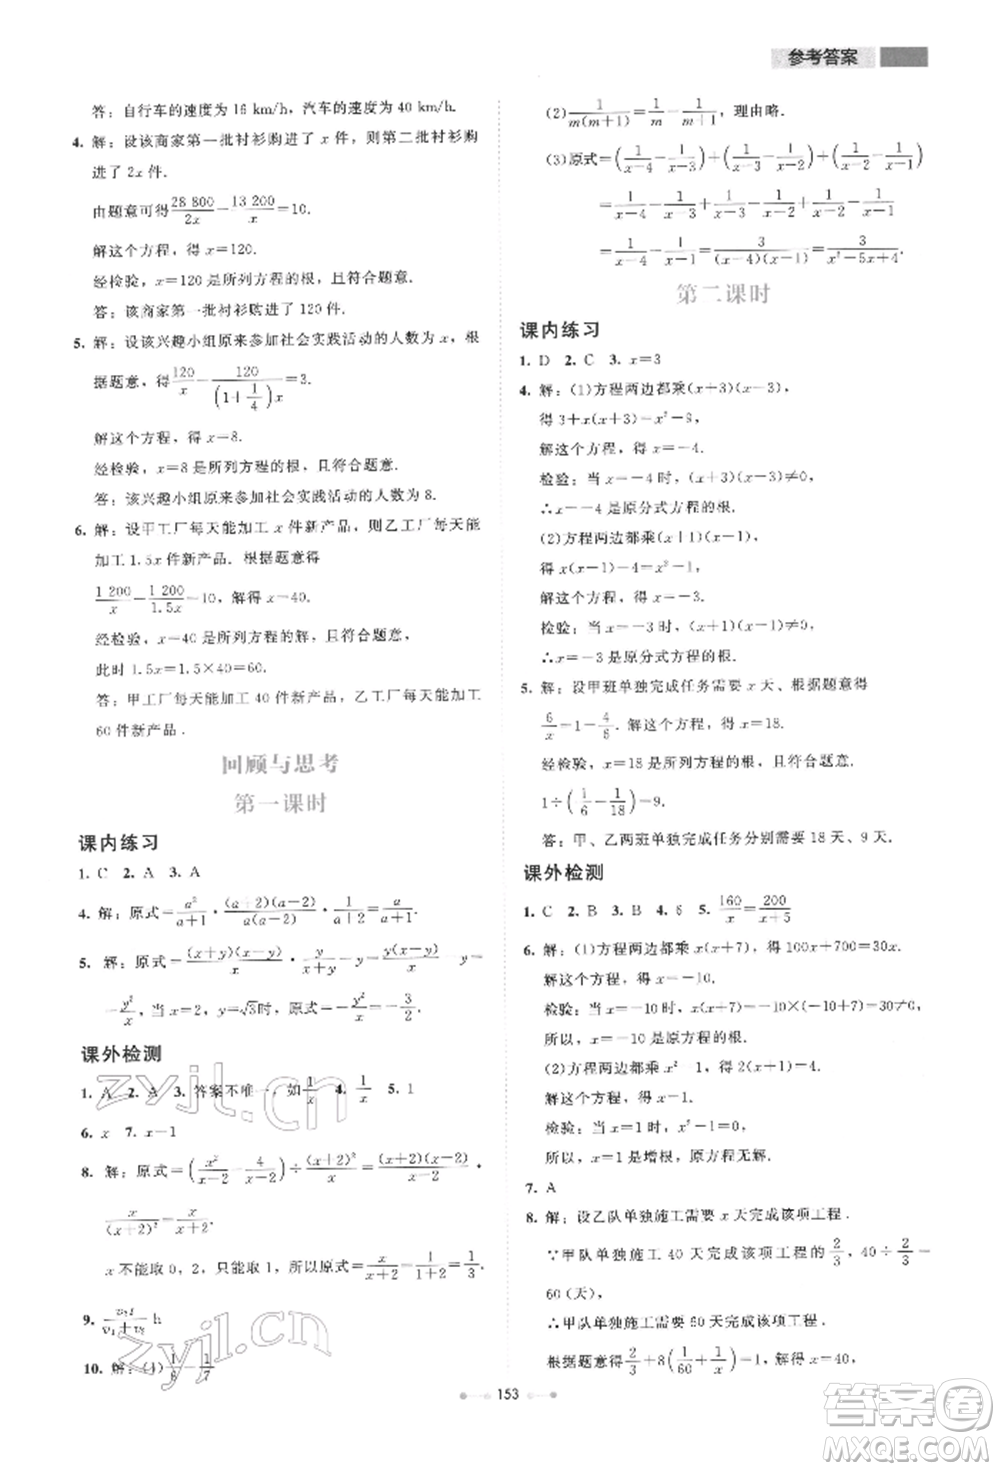 参考答案
答：自行车的速度为 16 km/h，汽车的速度为 40 km/h.
4. 解：设该商家第一批衬衫购进了 x 件，则第二批衬衫购
进了 2x 件.
由题意可得 28 800/2x − 13 200/x = 10.
解这个方程，得 x=120.
经检验，x=120 是所列方程的根，且符合题意.
答：该商家第一批衬衫购进了 120 件.
5. 解：设该兴趣小组原来参加社会实践活动的人数为 x，根
据题意，得 120/x − 120/((1+1/4)x) = 3.
解这个方程，得 x=8.
经检验，x=8 是所列方程的根，且符合题意.
答：该兴趣小组原来参加社会实践活动的人数为 8.
6. 解：设甲工厂每天能加工 x 件新产品，则乙工厂每天能
加工 1.5x 件新产品. 根据题意得
1 200/x − 1 200/1.5x = 10，解得 x=40.
经检验，x=40 是所列方程的解，且符合题意.
此时 1.5x=1.5×40=60.
答：甲工厂每天能加工 40 件新产品，乙工厂每天能加工
60 件新产品.
回顾与思考
第一课时
课内练习
1. C 2. A 3. A
4. 解：原式= a²/(a+1) · (a+2)(a−2)/a(a−2) · 1/(a+2) = a/(a+1).
5. 解：原式= −(x+y)(x−y)/x · y/(x+y) · y/(x−y) =
−y²/x，当 x=2，y=√3时，原式=−y²/x=−3/2.
课外检测
1. A 2. A 3. 答案不唯一，如1/x 4. 1/x 5. 1
6. x 7. x−1
8. 解：原式=(x²/(x−2) − 4/(x−2)) ÷ (x+2)²/x = (x+2)(x−2)/(x−2) ·
x/(x+2)² = x/(x+2).
x 不能取 0，2，只能取 1，所以原式= x/(x+2) = 1/(1+2) = 1/3.
9. /(v₁+v₂) h
10. 解：(1) 1/6 − 1/7
(2) 1/m(m+1) = 1/m − 1/(m+1)，理由略.
(3)原式=(1/(x−4) − 1/(x−3)) + (1/(x−3) − 1/(x−2)) + (1/(x−2) − 1/(x−1))
= 1/(x−4) − 1/(x−3) + 1/(x−3) − 1/(x−2) + 1/(x−2) − 1/(x−1)
= 1/(x−4) − 1/(x−1) = 3/(x−4)(x−1) = 3/(x²−5x+4).
第二课时
课内练习
1. D 2. C 3. x=3
4. 解：(1)方程两边都乘(x+3)(x−3)，
得 3+x(x+3)=x²−9，
解这个方程，得 x=−4.
检验：当 x=−4 时，(x+3)(x−3)≠0，
∴x=−4 是原分式方程的根.
(2)方程两边都乘(x+1)(x−1)，
得 x(x−1)−4=x²−1，
解这个方程，得 x=−3.
检验：当 x=−3 时，(x+1)(x−1)≠0，
∴x=−3 是原分式方程的根.
5. 解：设甲班单独完成任务需要 x 天、根据题意得
6/x = 1 − 4/6. 解这个方程，得 x=18.
经检验，x=18 是所列方程的根，且符合题意.
1÷(1/6 − 1/18)=9.
答：甲、乙两班单独完成任务分别需要 18 天、9 天.
课外检测
1. C 2. B 3. B 4. 6 5. 160/x = 200/(x+5)
6. 解：(1)方程两边都乘 x(x+7)，得 100x+700=30x.
解这个方程，得 x=−10.
检验：当 x=−10 时，x(x+7)=−10×(−10+7)=30≠0，
所以，x=−10 是原方程的根.
(2)方程两边都乘 x²−1，得 2(x−1)=x−1.
解这个方程，得 x=1.
检验：当 x=1 时，x²−1=0，
所以，x=1 是增根，原方程无解.
7. A
8. 解：设乙队单独施工需要 x 天完成该项工程.
∵甲队单独施工 40 天完成该项工程的2/3，40÷2/3=
60(天)，
∴甲队单独施工需要 60 天完成该项工程.
根据题意得2/3+8(1/60+1/x)=1. 解得 x=40，
153
zyjl.cn
zyjl.cn
答案圈
MXQE.COM